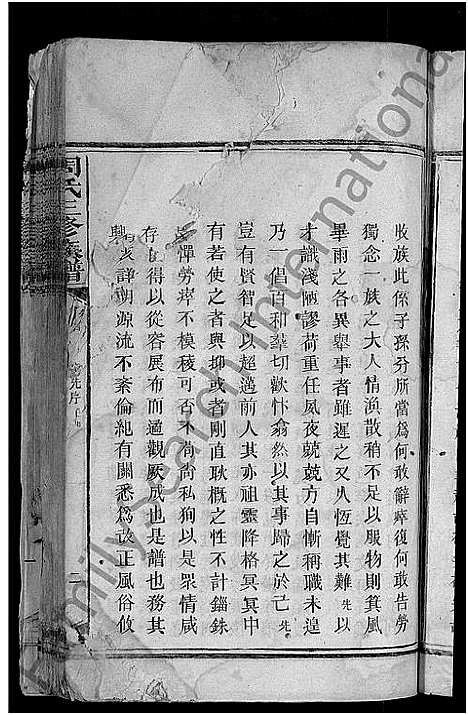 收族此係子孫分所當為何敢辭瘁復何敢告勞
獨念一族之大人情渙散稍不足以服物則箕風
畢雨之各異舉事者雖遲之又久恆覺其難先以
才識淺陋謬荷重任夙夜兢兢方自慚稱職未遑
乃一倡百和羣切歡忭翕然以其事歸之於亡先
豈有賢智足以超邁前人其亦祖靈降格冥冥中
有若使之者與抑或者剛直耿概之性不計錙銖
憚勞瘁不模稜可否不尚私狗以是眾情咸
存得以從容展布而適觀厥成也是譜也務其
詳明源流不紊倫紀有關悉為改正風俗攸
周氏三修族譜
Family Search International